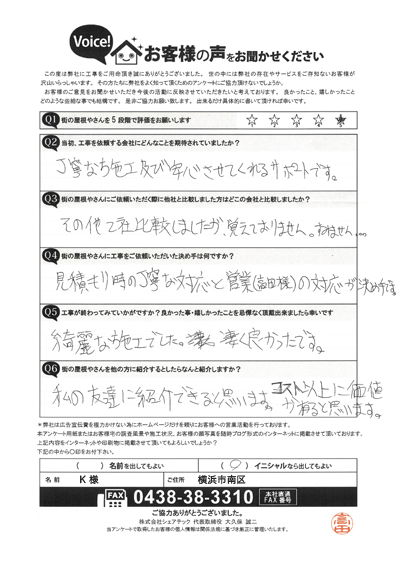 Voice!
お客様の声をお聞かせください
この度は弊社に工事をご用命頂き誠にありがとうございました。世の中には弊社の存在やサービスをご存知ないお客様が
沢山いらっしゃいます。その方たちに弊社をよく知って頂くためのアンケートにご協力頂けないでしょうか。
お客様のご意見をお聞かせいただき今後の活動に反映させていただきたいと考えております。良かったこと、嬉しかったこと
どのような些細な事でも結構です。是非ご協力お願い致します。出来るだけ具体的に書いて頂ければ幸いです。
Q1 街の屋根やさんを5段階で評価をお願いします ☆ ☆ ☆ ☆ ★
Q2 当初、工事を依頼する会社にどんなことを期待されていましたか?
丁寧なお施工及び安心させてくれるサポートです。
Q3 街の屋根やさんにご依頼いただく際に他社と比較しました方はどこの会社と比較しましたか?
その他2社比較しましたが、覚えておりません。すみません...
Q4 街の屋根やさんに工事をご依頼いただいた決め手は何ですか?
見積もり時の丁寧な対応と営業(富田様)の対応が決め手です
Q5 工事が終わってみていかがですか?良かった事・嬉しかったことを忌憚なく頂戴出来ましたら幸いです
綺麗なお施工でした。凄く良かったです。
Q6 街の屋根やさんを他の方に紹介するとしたらなんと紹介しますか?
私の友達に紹介できると思います。コスト以上に価値
が有ると思います。
*弊社は広告宣伝費を極力かけない為にホームページだけを頼りにお客様への営業活動を行っております。
本アンケート用紙またはお客様宅の調査風景や施工状況、お客様の顔写真を随時ブログ形式のインターネットに掲載させて頂いております。
上記内容をインターネットや印刷物に掲載させて頂いてもよろしいでしょうか?
下記の中から〇印をお付下さい。
( )名前を出してもよい (○)イニシャルなら出してもよい
名前 K 様 ご住所 横浜市南区
FAX 0438-38-3310 本社直通 FAX番号
ご協力ありがとうございました。
株式会社シェアテック 代表取締役 大久保 誠二
当アンケートで取得したお客様の個人情報は関係法規に基づき厳正に管理いたします。
富田